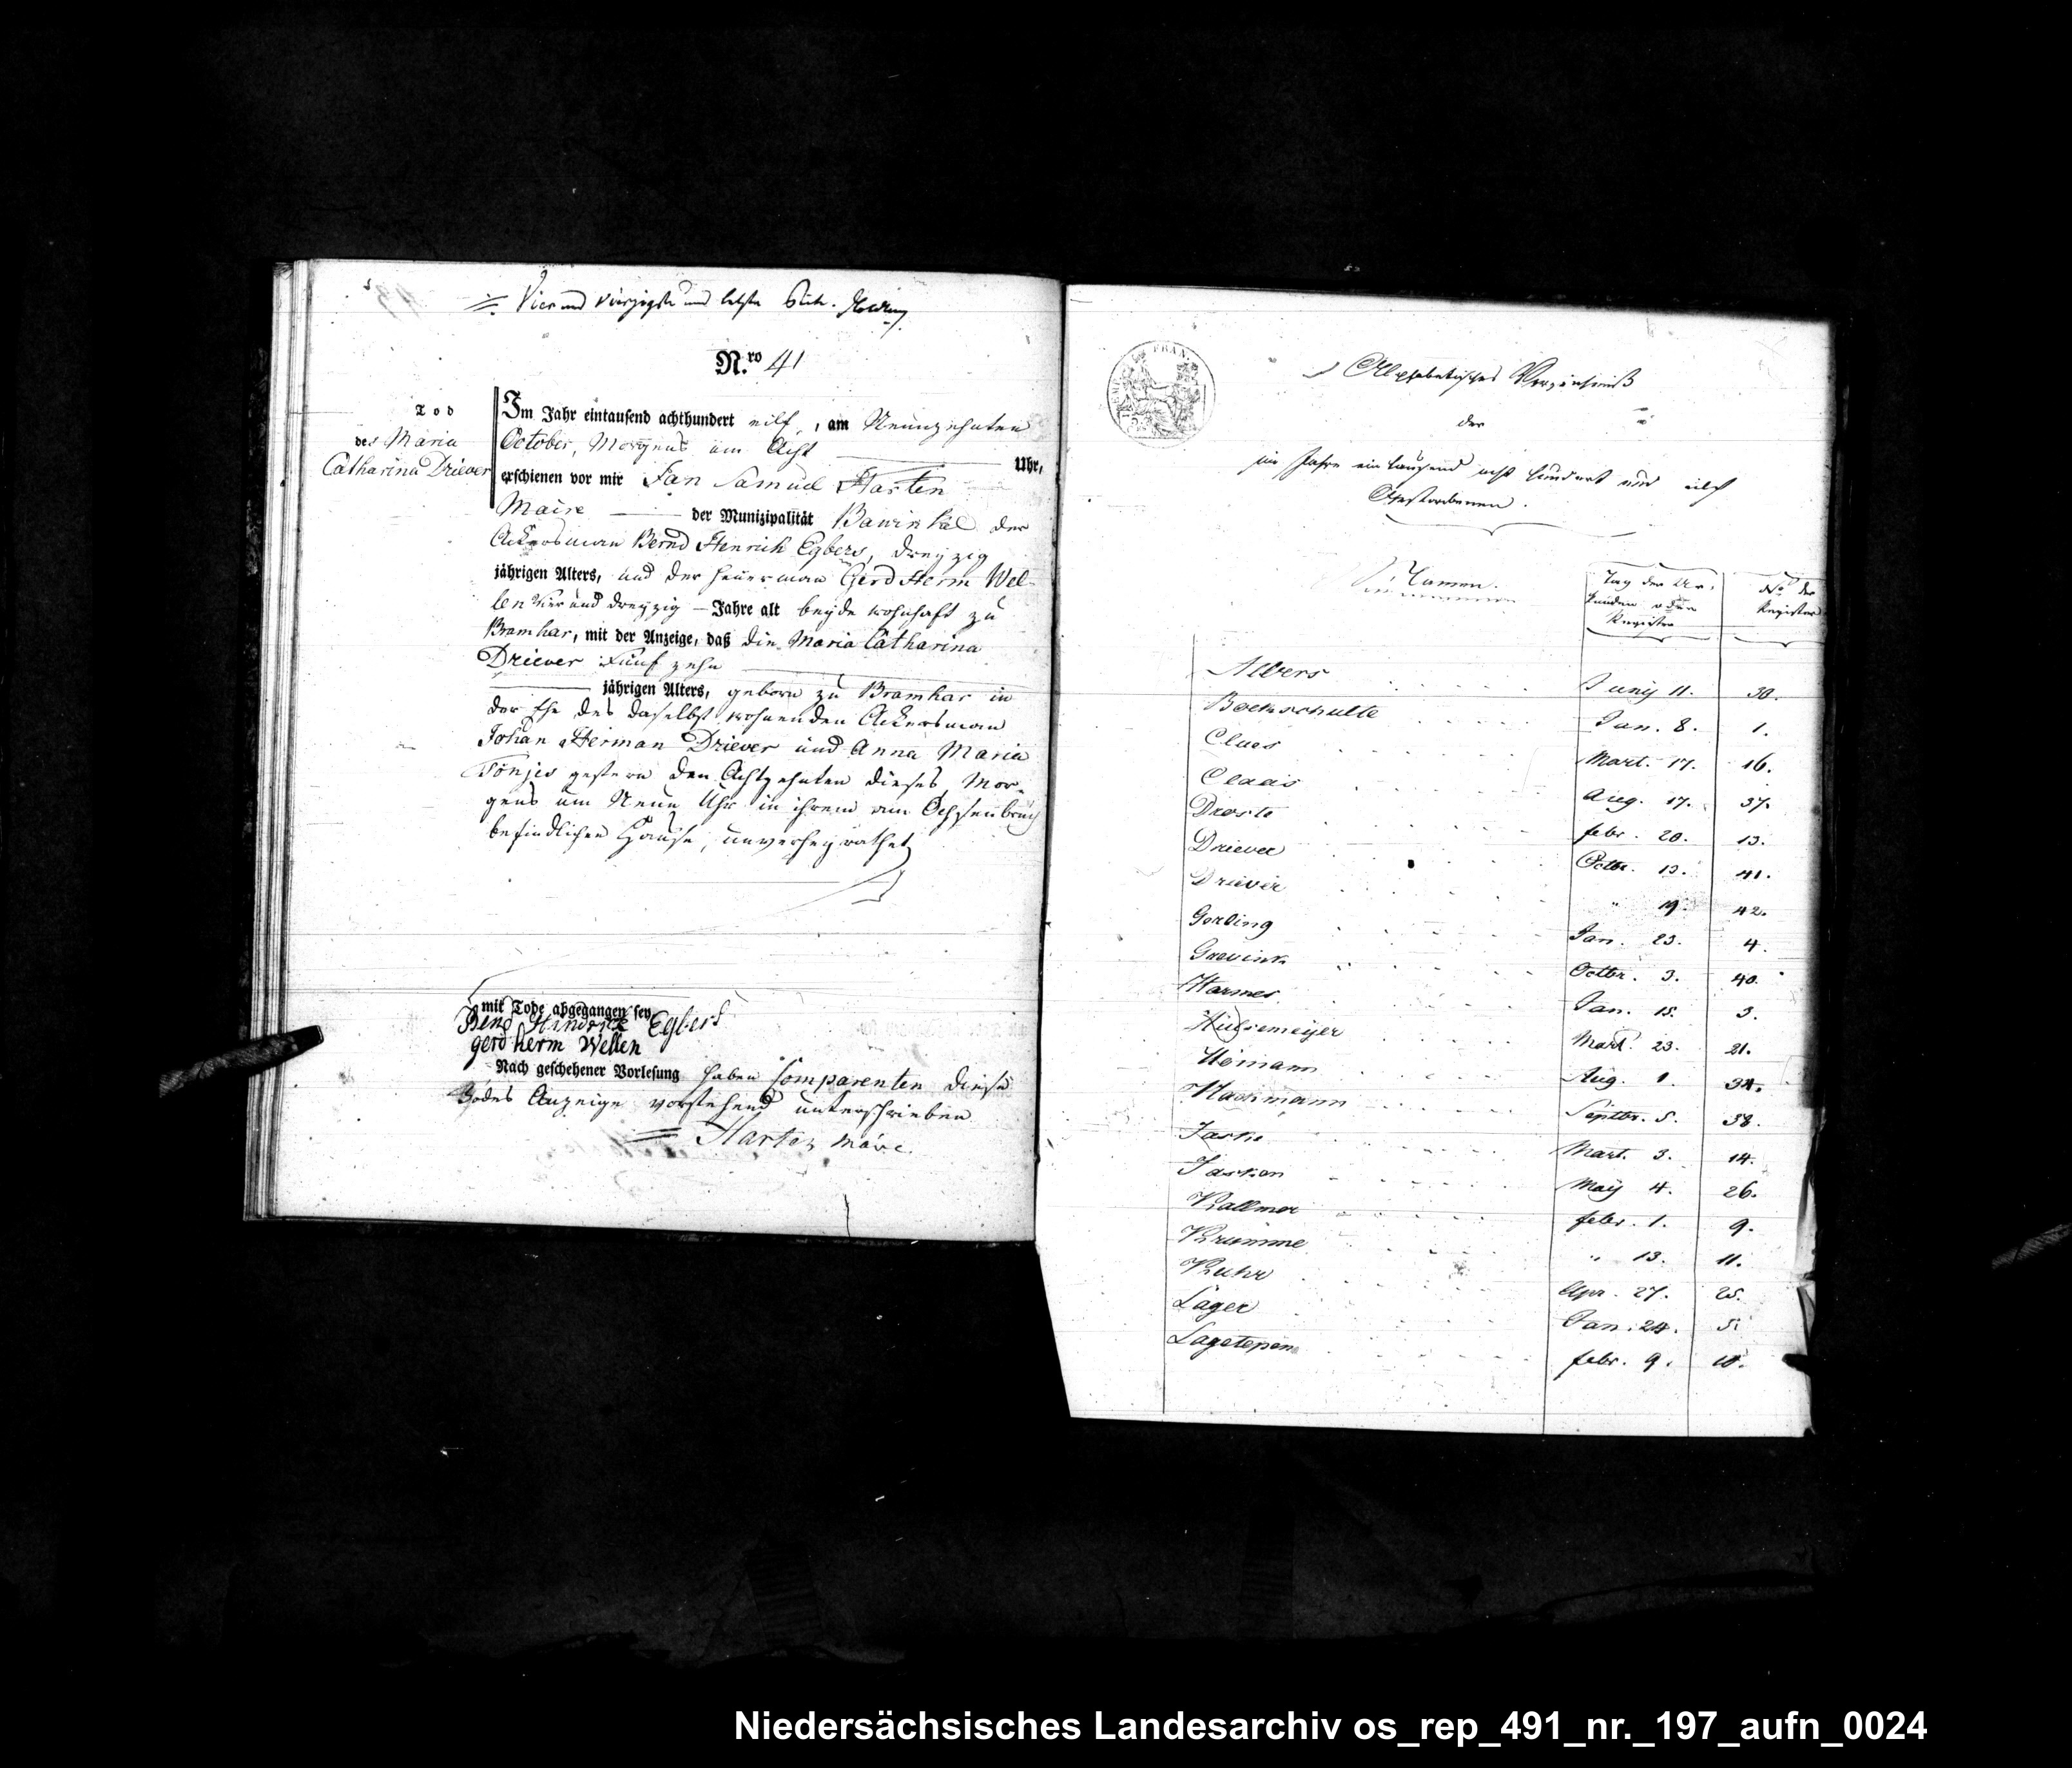 Vier und vierzigste und letzte Seite.
N.ro 41
Tod
des Maria
Catharina Driever
Im Jahr eintausend achthundert eilf, am Neunzehnten
October, Morgens um Acht Uhr,
erschienen vor mir Jan Samuel Harten
Maire der Munizipalität Bawinkel der
Ackersman Bernd Henrich Egbers, dreyzig
jährigen Alters, und der Heuerman Gerd Herm Wel-
len Vier und dreyzig Jahre alt beyde wohnhaft zu
Bramhar, mit der Anzeige, daß die Maria Catharina
Driever Fünfzehn
jährigen Alters, geboren zu Bramhar in
der Ehe des daselbst wohnenden Ackersman
Johan Herman Driever und Anna Maria
Tönjes gestern den Achtzehnten dieses Mor-
gens um Neun Uhr in ihrem am Ochsenbruch
befindlichen Hause, unverheyrathet
mit Tode abgegangen sey
Bend Hindrick Egbers
gerd herm Wellen
Nach geschehener Vorlesung haben Comparenten diese
Todes Anzeige vorstehend unterschrieben
Harten maire.
EMP. FRAN.
Alphabetisches Verzeichniß
der
im Jahre ein tausend acht hundert und eilf
Gestorbenen.
Namen. Tag der Ur- No. der
kunden oder Register
Register
Albers Juny 11. 30.
Boekschulte Jan. 8. 1.
Claes Mart. 17. 16.
Claas Aug. 17. 37.
Droste febr. 20. 13.
Driever Octbr. 13. 41.
Driever " 19. 42.
Gerling Jan. 23. 4.
Grevink Octbr. 3. 40.
Harmes Jan. 15. 3.
Hülsemeyer Mart. 23. 21.
Hömann Aug. 1. 34.
Septbr. 5. 38.
Mart. 3. 14.
Jasken May 4. 26.
Kallmer febr. 1. 9.
Krümme " 13. 11.
Kuhr Apr. 27. 25.
Läger Jan. 24. 5.
Lagetepen febr. 9. 10.
Niedersächsisches Landesarchiv os_rep_491_nr._197_aufn_0024